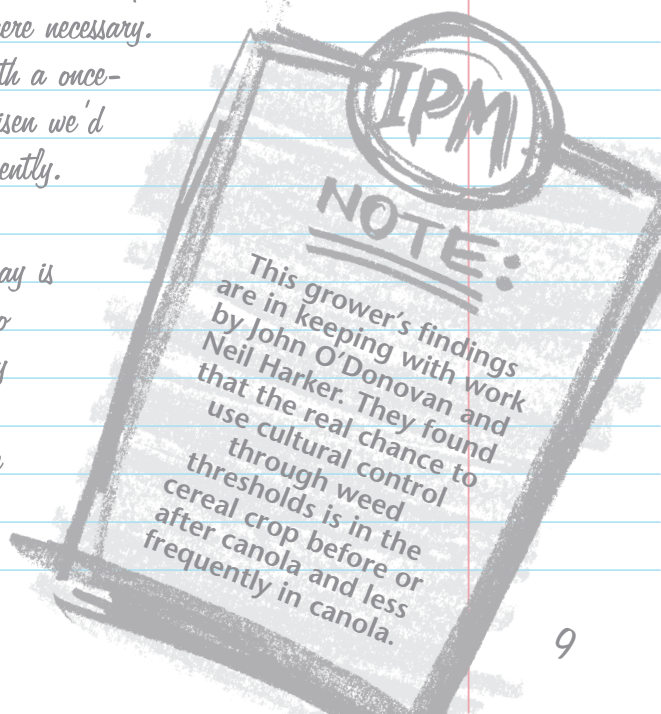 ere necessary.
th a once-
isen we'd
ently.
ay is
o
y
IPM
NOTE:
This grower's findings
are in keeping with work
by John O'Donovan and
Neil Harker. They found
that the real chance to
use cultural control
through weed
thresholds is in the
cereal crop before or
after canola and less
frequently in canola.
9